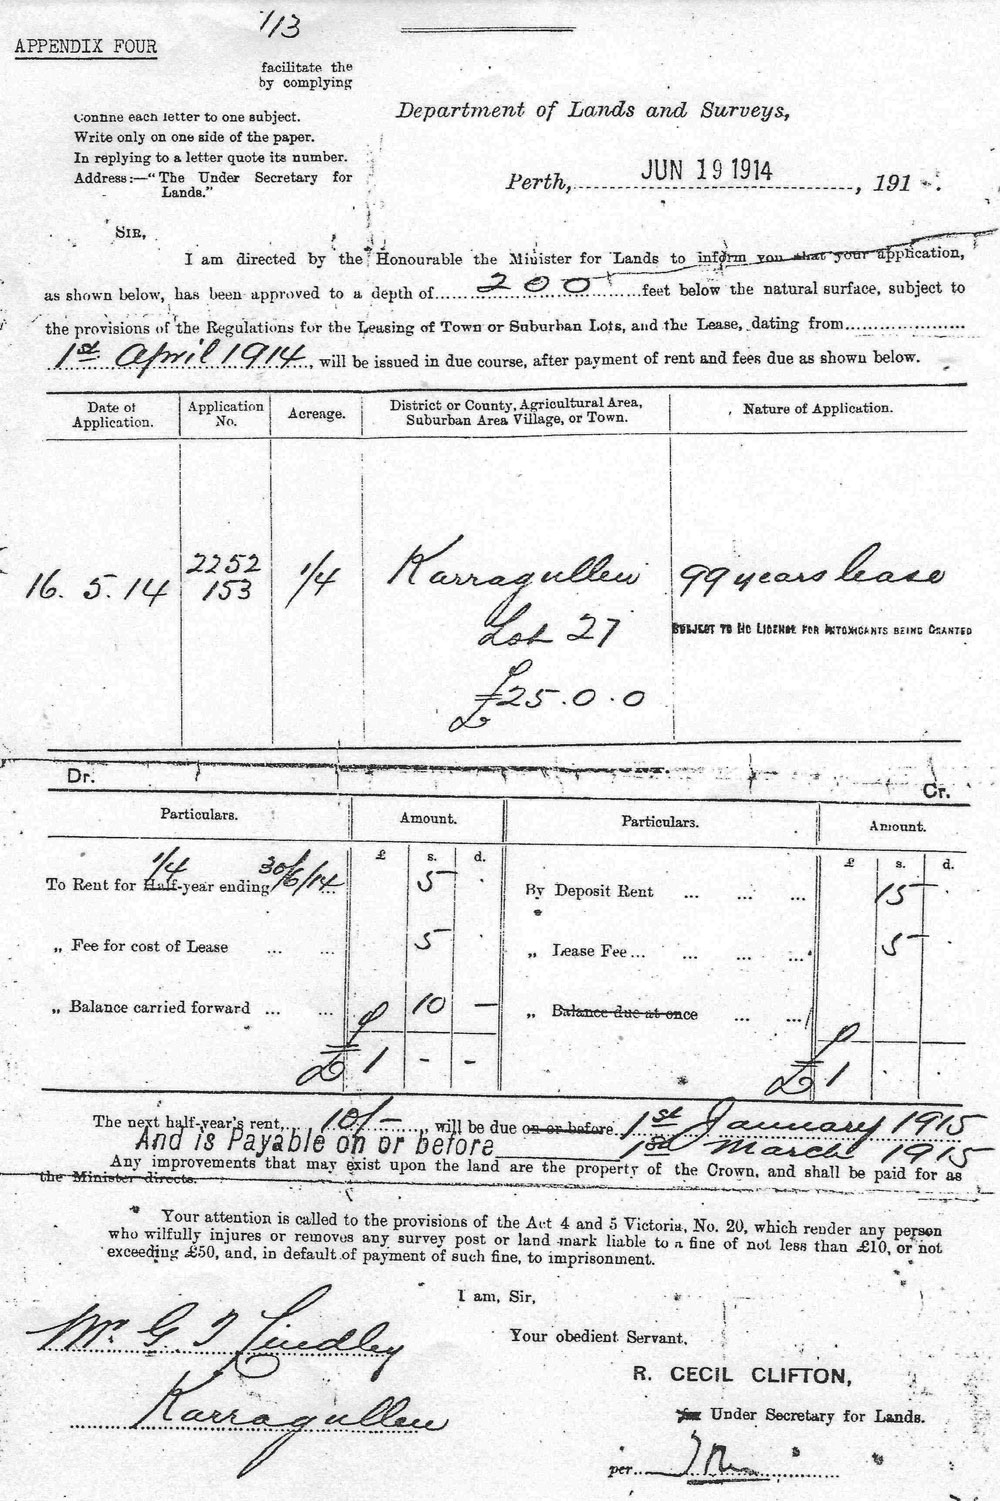 113
APPENDIX FOUR
facilitate the
by complying
Confine each letter to one subject.
Write only on one side of the paper.
In replying to a letter quote its number.
Address:—"The Under Secretary for
Lands."
Department of Lands and Surveys,
Perth, JUN 19 1914, 191 .
SIR,
I am directed by the Honourable the Minister for Lands to inform you that your application,
as shown below, has been approved to a depth of 200 feet below the natural surface, subject to
the provisions of the Regulations for the Leasing of Town or Suburban Lots, and the Lease, dating from
1st April 1914, will be issued in due course, after payment of rent and fees due as shown below.
Date of Application. Application No. Acreage. District or County, Agricultural Area, Suburban Area Village, or Town. Nature of Application.
16. 5. 14 2252 153 1/4 Karragullen 99 years lease
Lot 27 SUBJECT TO NO LICENSE FOR INTOXICANTS BEING GRANTED
£25.0.0
Dr. Cr.
Particulars. Amount. Particulars. Amount.
£ s. d. £ s. d.
To Rent for 1/4 Half-year ending 30/6/14 5 By Deposit Rent ... ... ... 15
„ Fee for cost of Lease ... ... 5 „ Lease Fee ... ... ... ... 5
„ Balance carried forward ... ... 10 — „ Balance due at once ... ...
£ 1 - - £ 1
The next half-year's rent, 10/-, will be due on or before 1st January 1915
And is Payable on or before 1st March 1915
Any improvements that may exist upon the land are the property of the Crown, and shall be paid for as
the Minister directs.
Your attention is called to the provisions of the Act 4 and 5 Victoria, No. 20, which render any person
who wilfully injures or removes any survey post or land mark liable to a fine of not less than £10, or not
exceeding £50, and, in default of payment of such fine, to imprisonment.
I am, Sir,
Your obedient Servant,
Mr. G. T Lindley
R. CECIL CLIFTON,
Karragullen
Under Secretary for Lands.
per